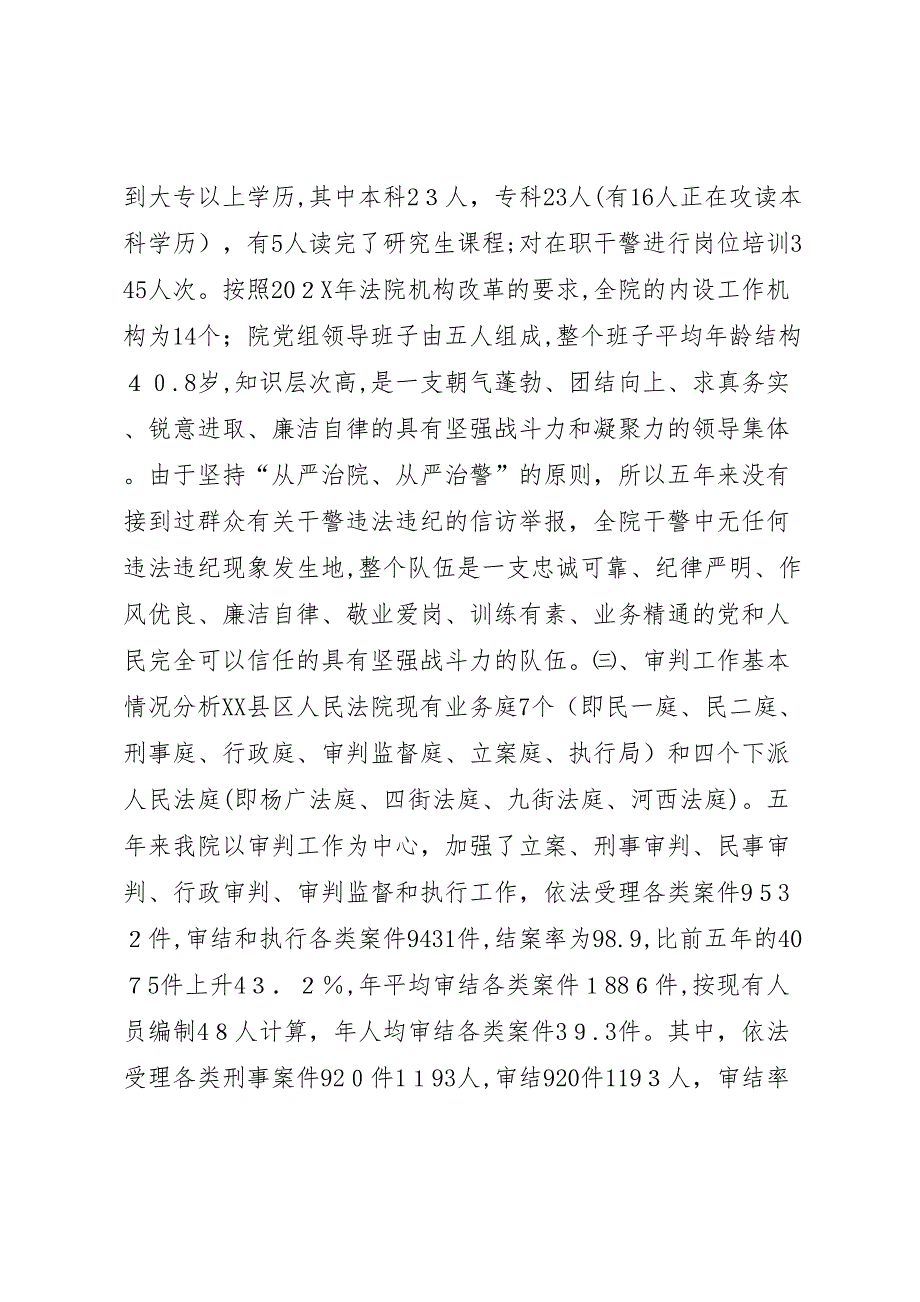 到大专以上学历,其中本科2３人，专科23人(有16人正在攻读本
科学历），有5人读完了研究生课程;对在职干警进行岗位培训3
45人次。按照20２X年法院机构改革的要求,全院的内设工作机
构为14个；院党组领导班子由五人组成,整个班子平均年龄结构
４０.8岁,知识层次高,是一支朝气蓬勃、团结向上、求真务实
、锐意进取、廉洁自律的具有坚强战斗力和凝聚力的领导集体
。由于坚持“从严治院、从严治警”的原则，所以五年来没有
接到过群众有关干警违法违纪的信访举报，全院干警中无任何
违法违纪现象发生地,整个队伍是一支忠诚可靠、纪律严明、作
风优良、廉洁自律、敬业爱岗、训练有素、业务精通的党和人
民完全可以信任的具有坚强战斗力的队伍。㈢、审判工作基本
情况分析XX县区人民法院现有业务庭7个（即民一庭、民二庭、
刑事庭、行政庭、审判监督庭、立案庭、执行局）和四个下派
人民法庭(即杨广法庭、四街法庭、九街法庭、河西法庭)。五
年来我院以审判工作为中心，加强了立案、刑事审判、民事审
判、行政审判、审判监督和执行工作，依法受理各类案件9５３
２件,审结和执行各类案件9431件,结案率为98.9,比前五年的40
７5件上升4３．２%,年平均审结各类案件１88６件,按现有人
员编制4８人计算，年人均审结各类案件3９.3件。其中，依法
受理各类刑事案件92０件1１93人,审结920件119３人，审结率